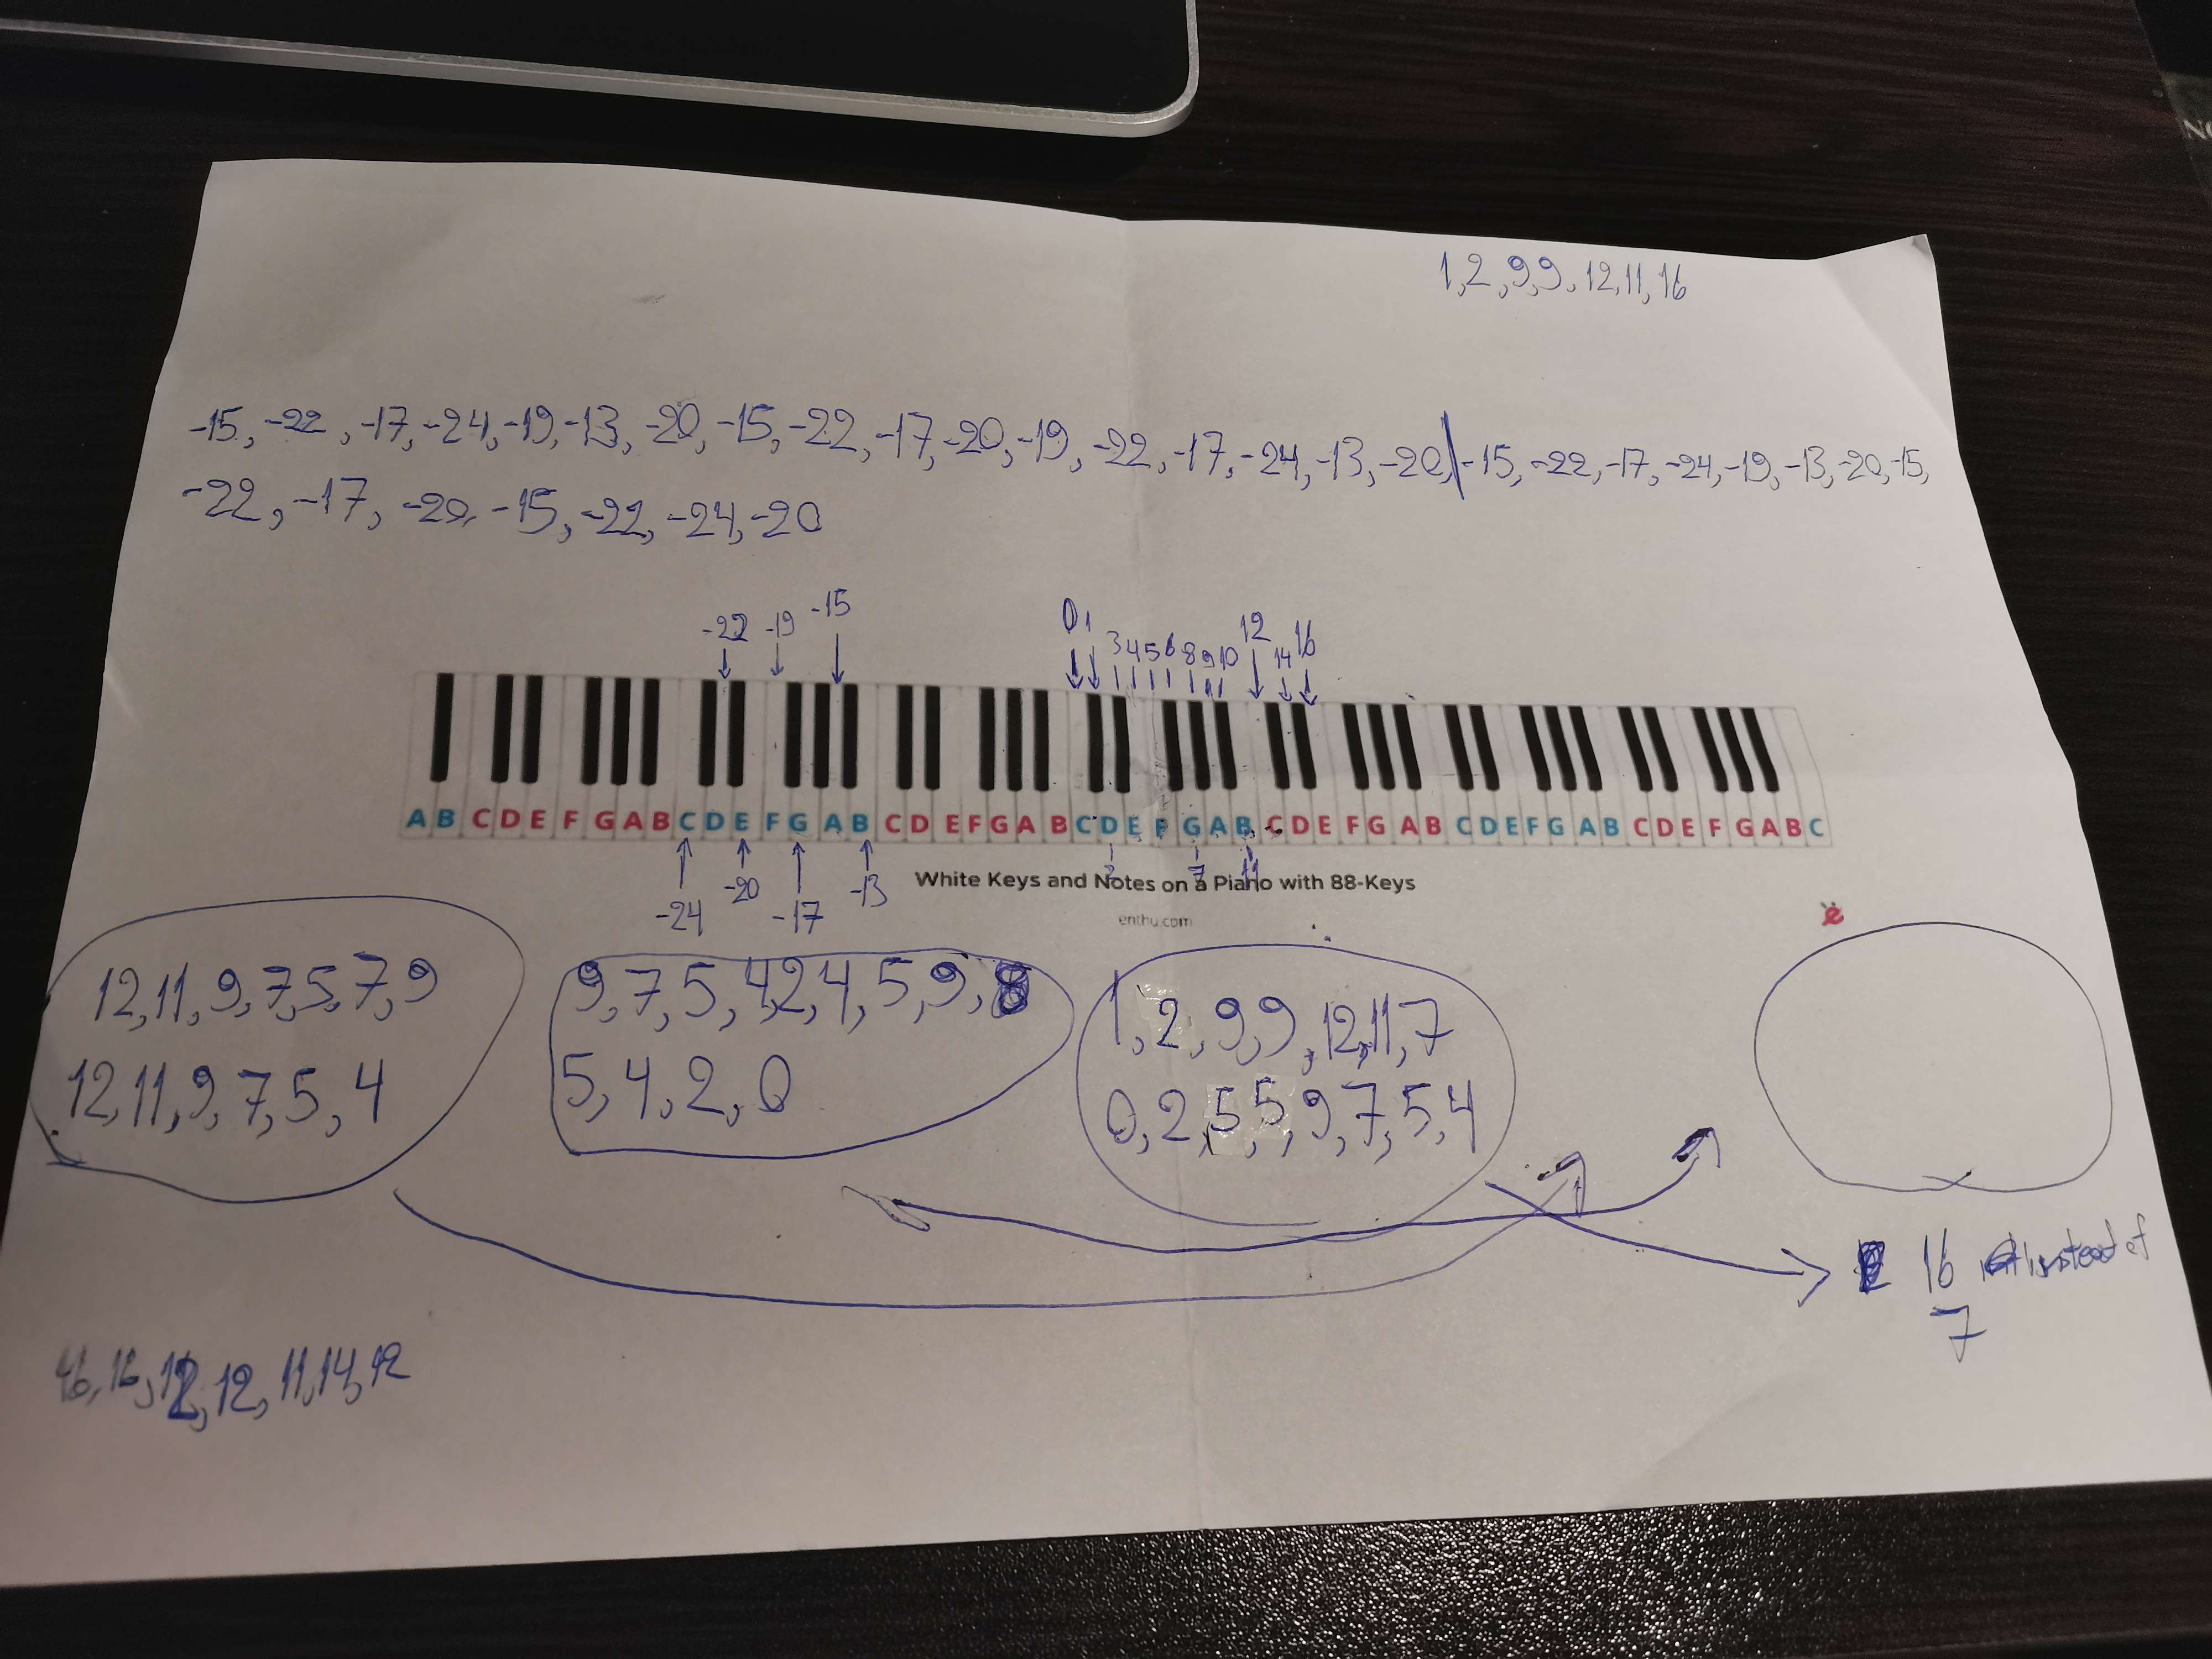 1,2,9,9,12,11,16
-15,-22,-17,-24,-19,-13,-20,-15,-22,-17,-20,-19,-22,-17,-24,-13,-20,|-15,-22,-17,-24,-19,-13,-20,-15,
-22,-17,-20,-15,-22,-24,-20
-22 -19 -15 0 1 3 4 5 6 8 9 10 12 14 16
A B C D E F G A B C D E F G A B C D E F G A B C D E F G A B C D E F G A B C D E F G A B C D E F G A B C
-24 -20 -17 -13 2 7 11
White Keys and Notes on a Piano with 88-Keys
enthu.com
ë
12,11,9,7,5,7,9
12,11,9,7,5,4
9,7,5,4,2,4,5,9,8
5,4,2,0
1,2,9,9,12,11,7
0,2,5,5,9,7,5,4
16 instead of
7
16,16,12,12,11,14,12